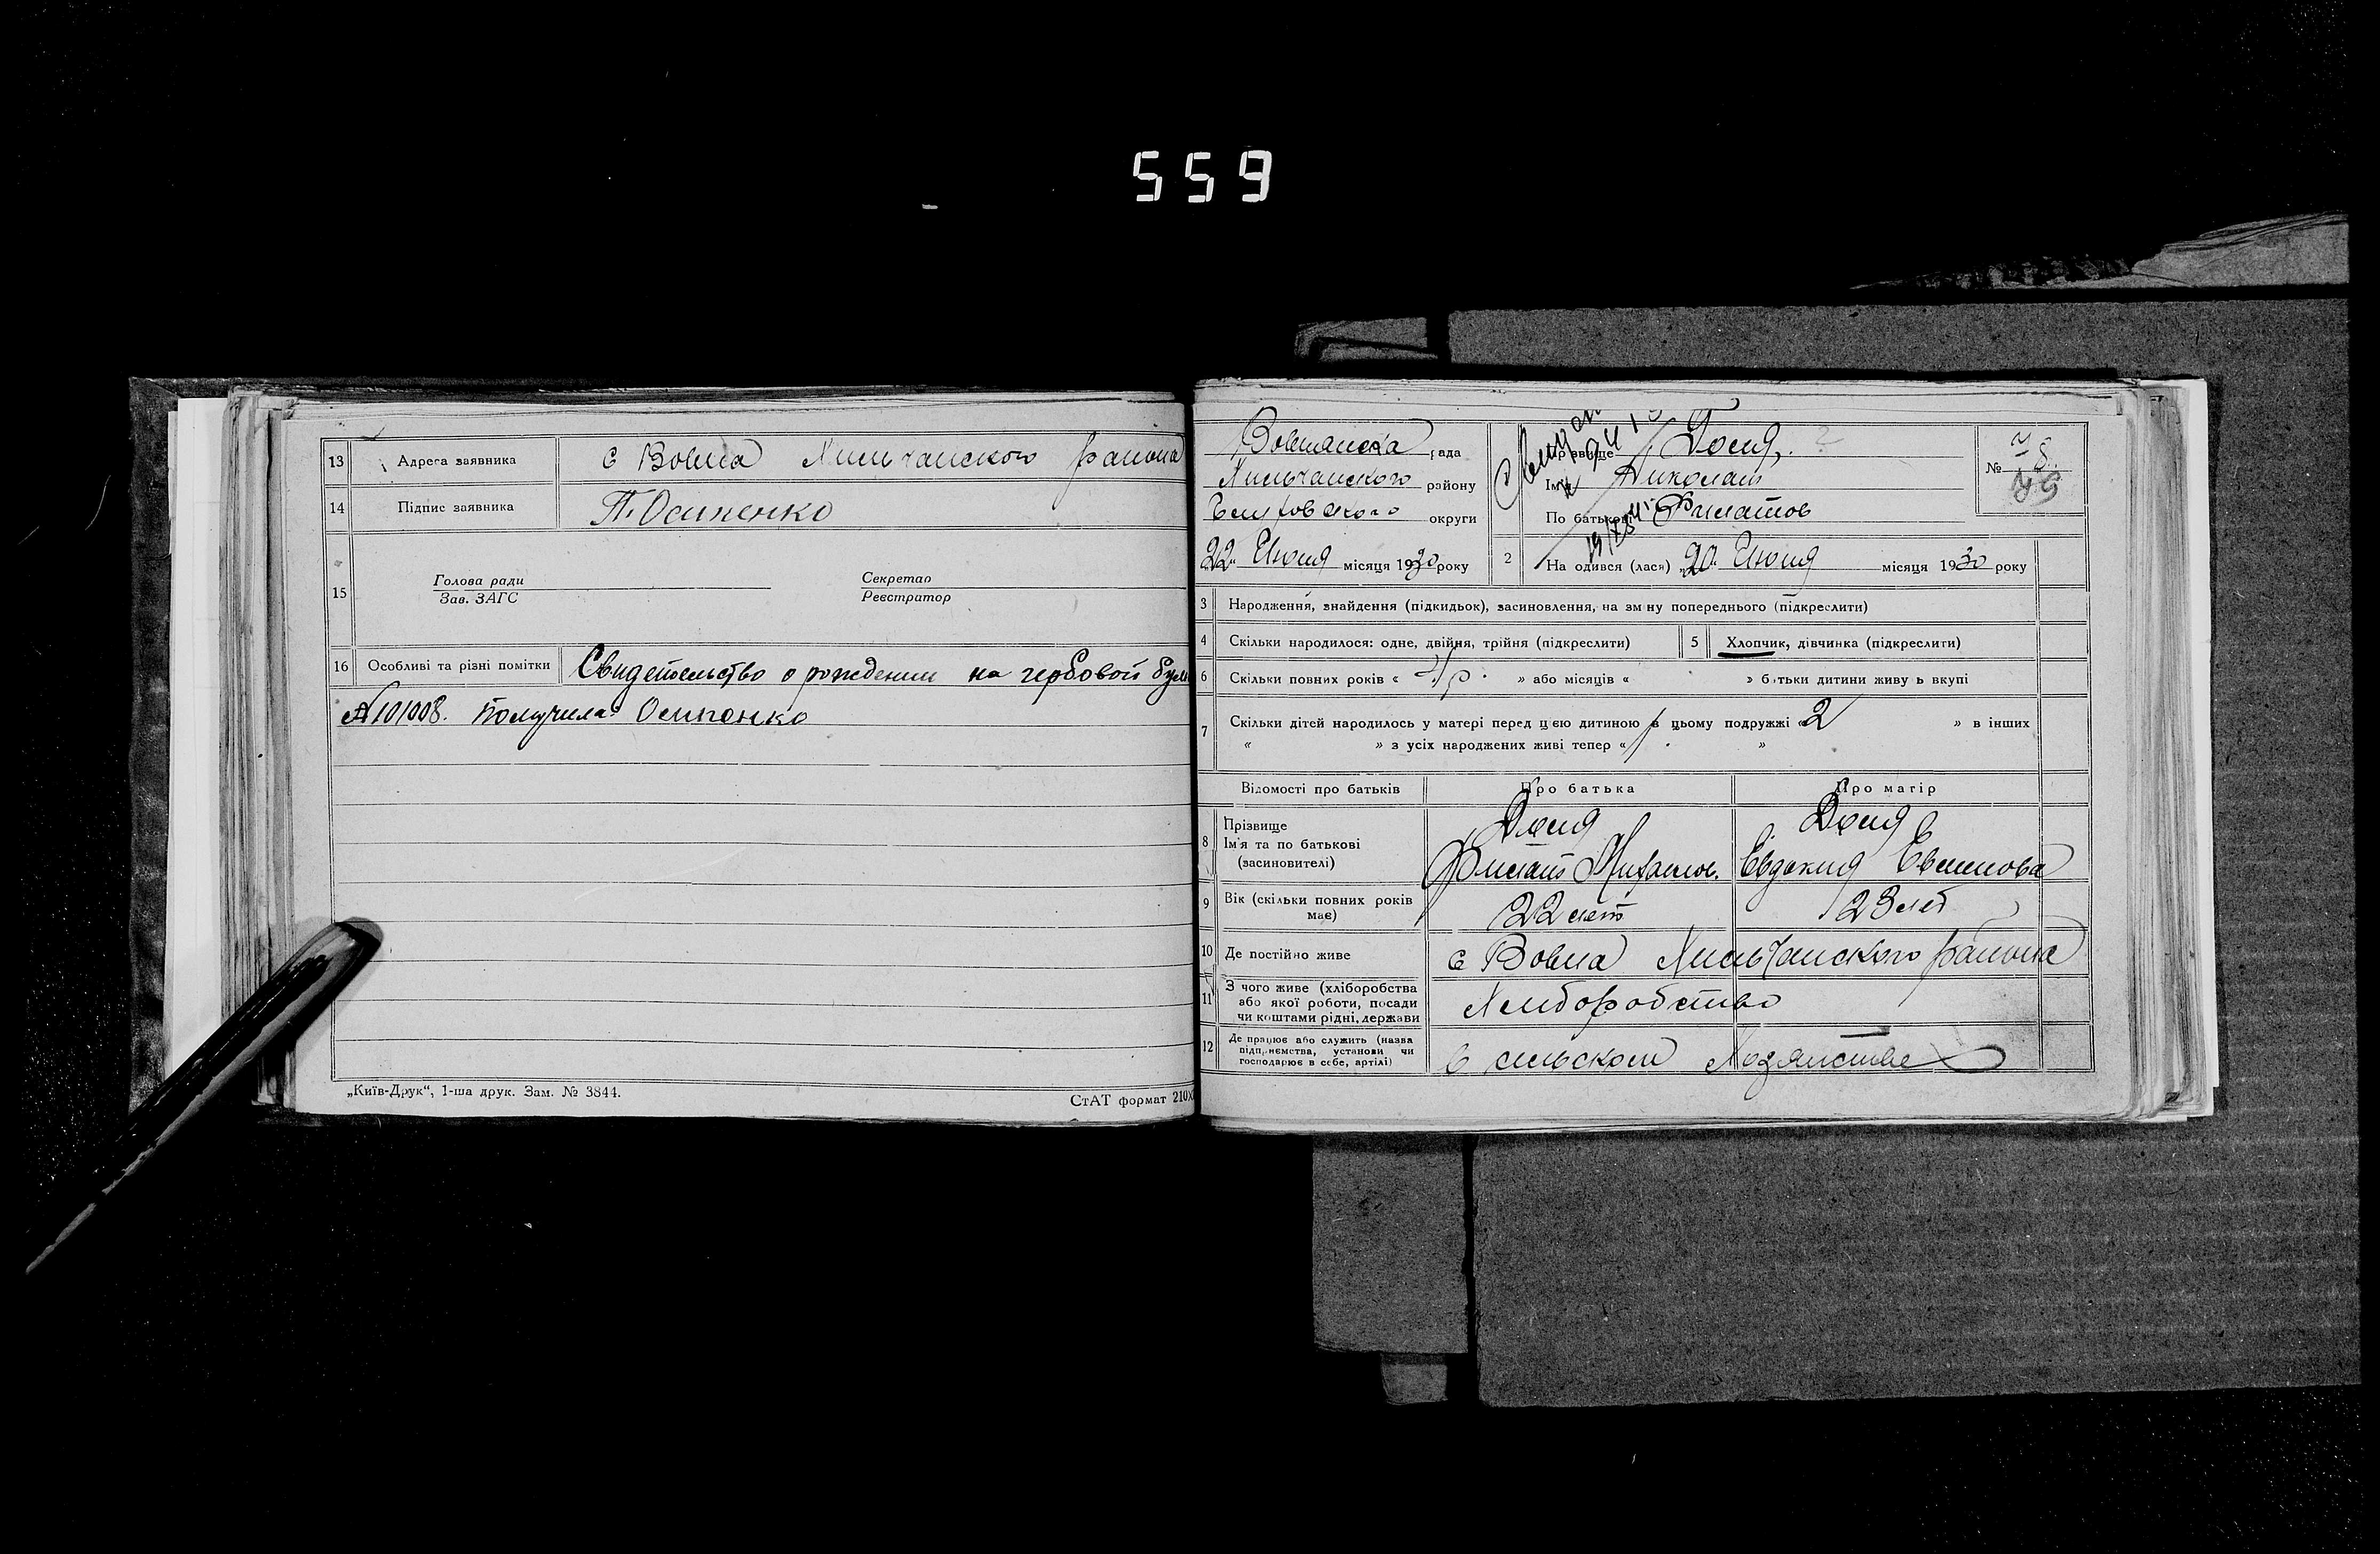 559
13 Адреса заявника с Вовна Хильчанского района
14 Підпис заявника П. Осипенко
15 Голова ради Секретар
Зав. ЗАГС Реєстратор
16 Особливі та різні помітки Свидетельство о рождении на гербовой бум
№101008. Получила Осипенко
„Київ-Друк“, 1-ша друк. Зам. № 3844.
СтАТ формат 210х
рада
Хильчанского району
округи
„22“ Июня місяця 1930 року
Прізвище Доля,
Ім'я Николай
По батькові Филатов
№ 78
2 На одився (лася) „20“ Июня місяця 1930 року
3 Народження, знайдення (підкидьок), засиновлення, на зм ну попереднього (підкреслити)
4 Скільки народилося: одне, двійня, трійня (підкреслити)
5 Хлопчик, дівчинка (підкреслити)
6 Скільки повних років « » або місяців « » батьки дитини живу ь вкупі
7 Скільки дітей народилось у матері перед цією дитиною в цьому подружжі «2 » в інших
« » з усіх народжених живі тепер «1 »
Відомості про батьків Про батька Про матір
8 Прізвище Доля Доля
Ім'я та по батькові Филат Михайлов. Евдокия
(засновителі)
9 Вік (скільки повних років 22 лет 23 лет
має)
10 Де постійно живе с Вовна Хильчанского района
11 З чого живе (хліборобства
або якої роботи, посади Хлиборобство
чи коштами рідні, держави
12 Де працює або служить (назва
підприємства, установи чи
господарює в себе, артілі) в сельском хозяистве